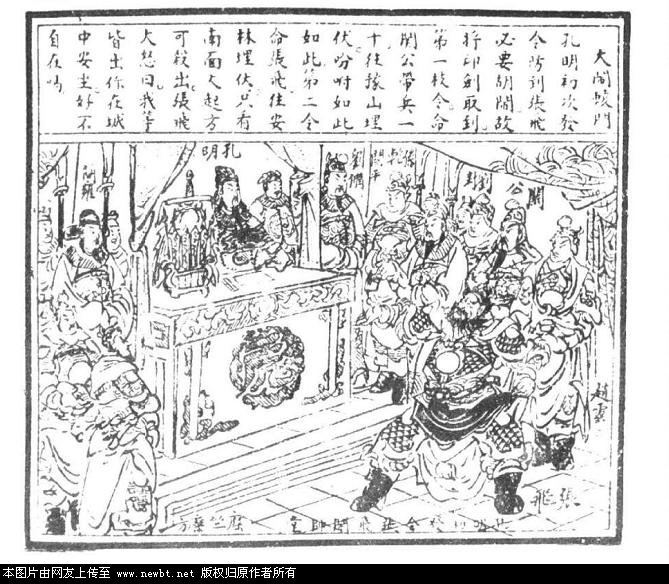 大鬧轅門
孔明初次發
令防到張飛
必要胡鬧故
将印劍取到
第一枝令命
関公帶兵一
千往豫山埋
伏吩咐如此
如此第二令
命張飛往安
林埋伏只看
南面火起方
可殺出張飛
大怒曰我等
皆出你在城
中安坐好不
自在嗎
関公
劉封
関平
孔明
趙雲
張飛
本图片由网友上传至 www.newbt.net 版权归原作者所有